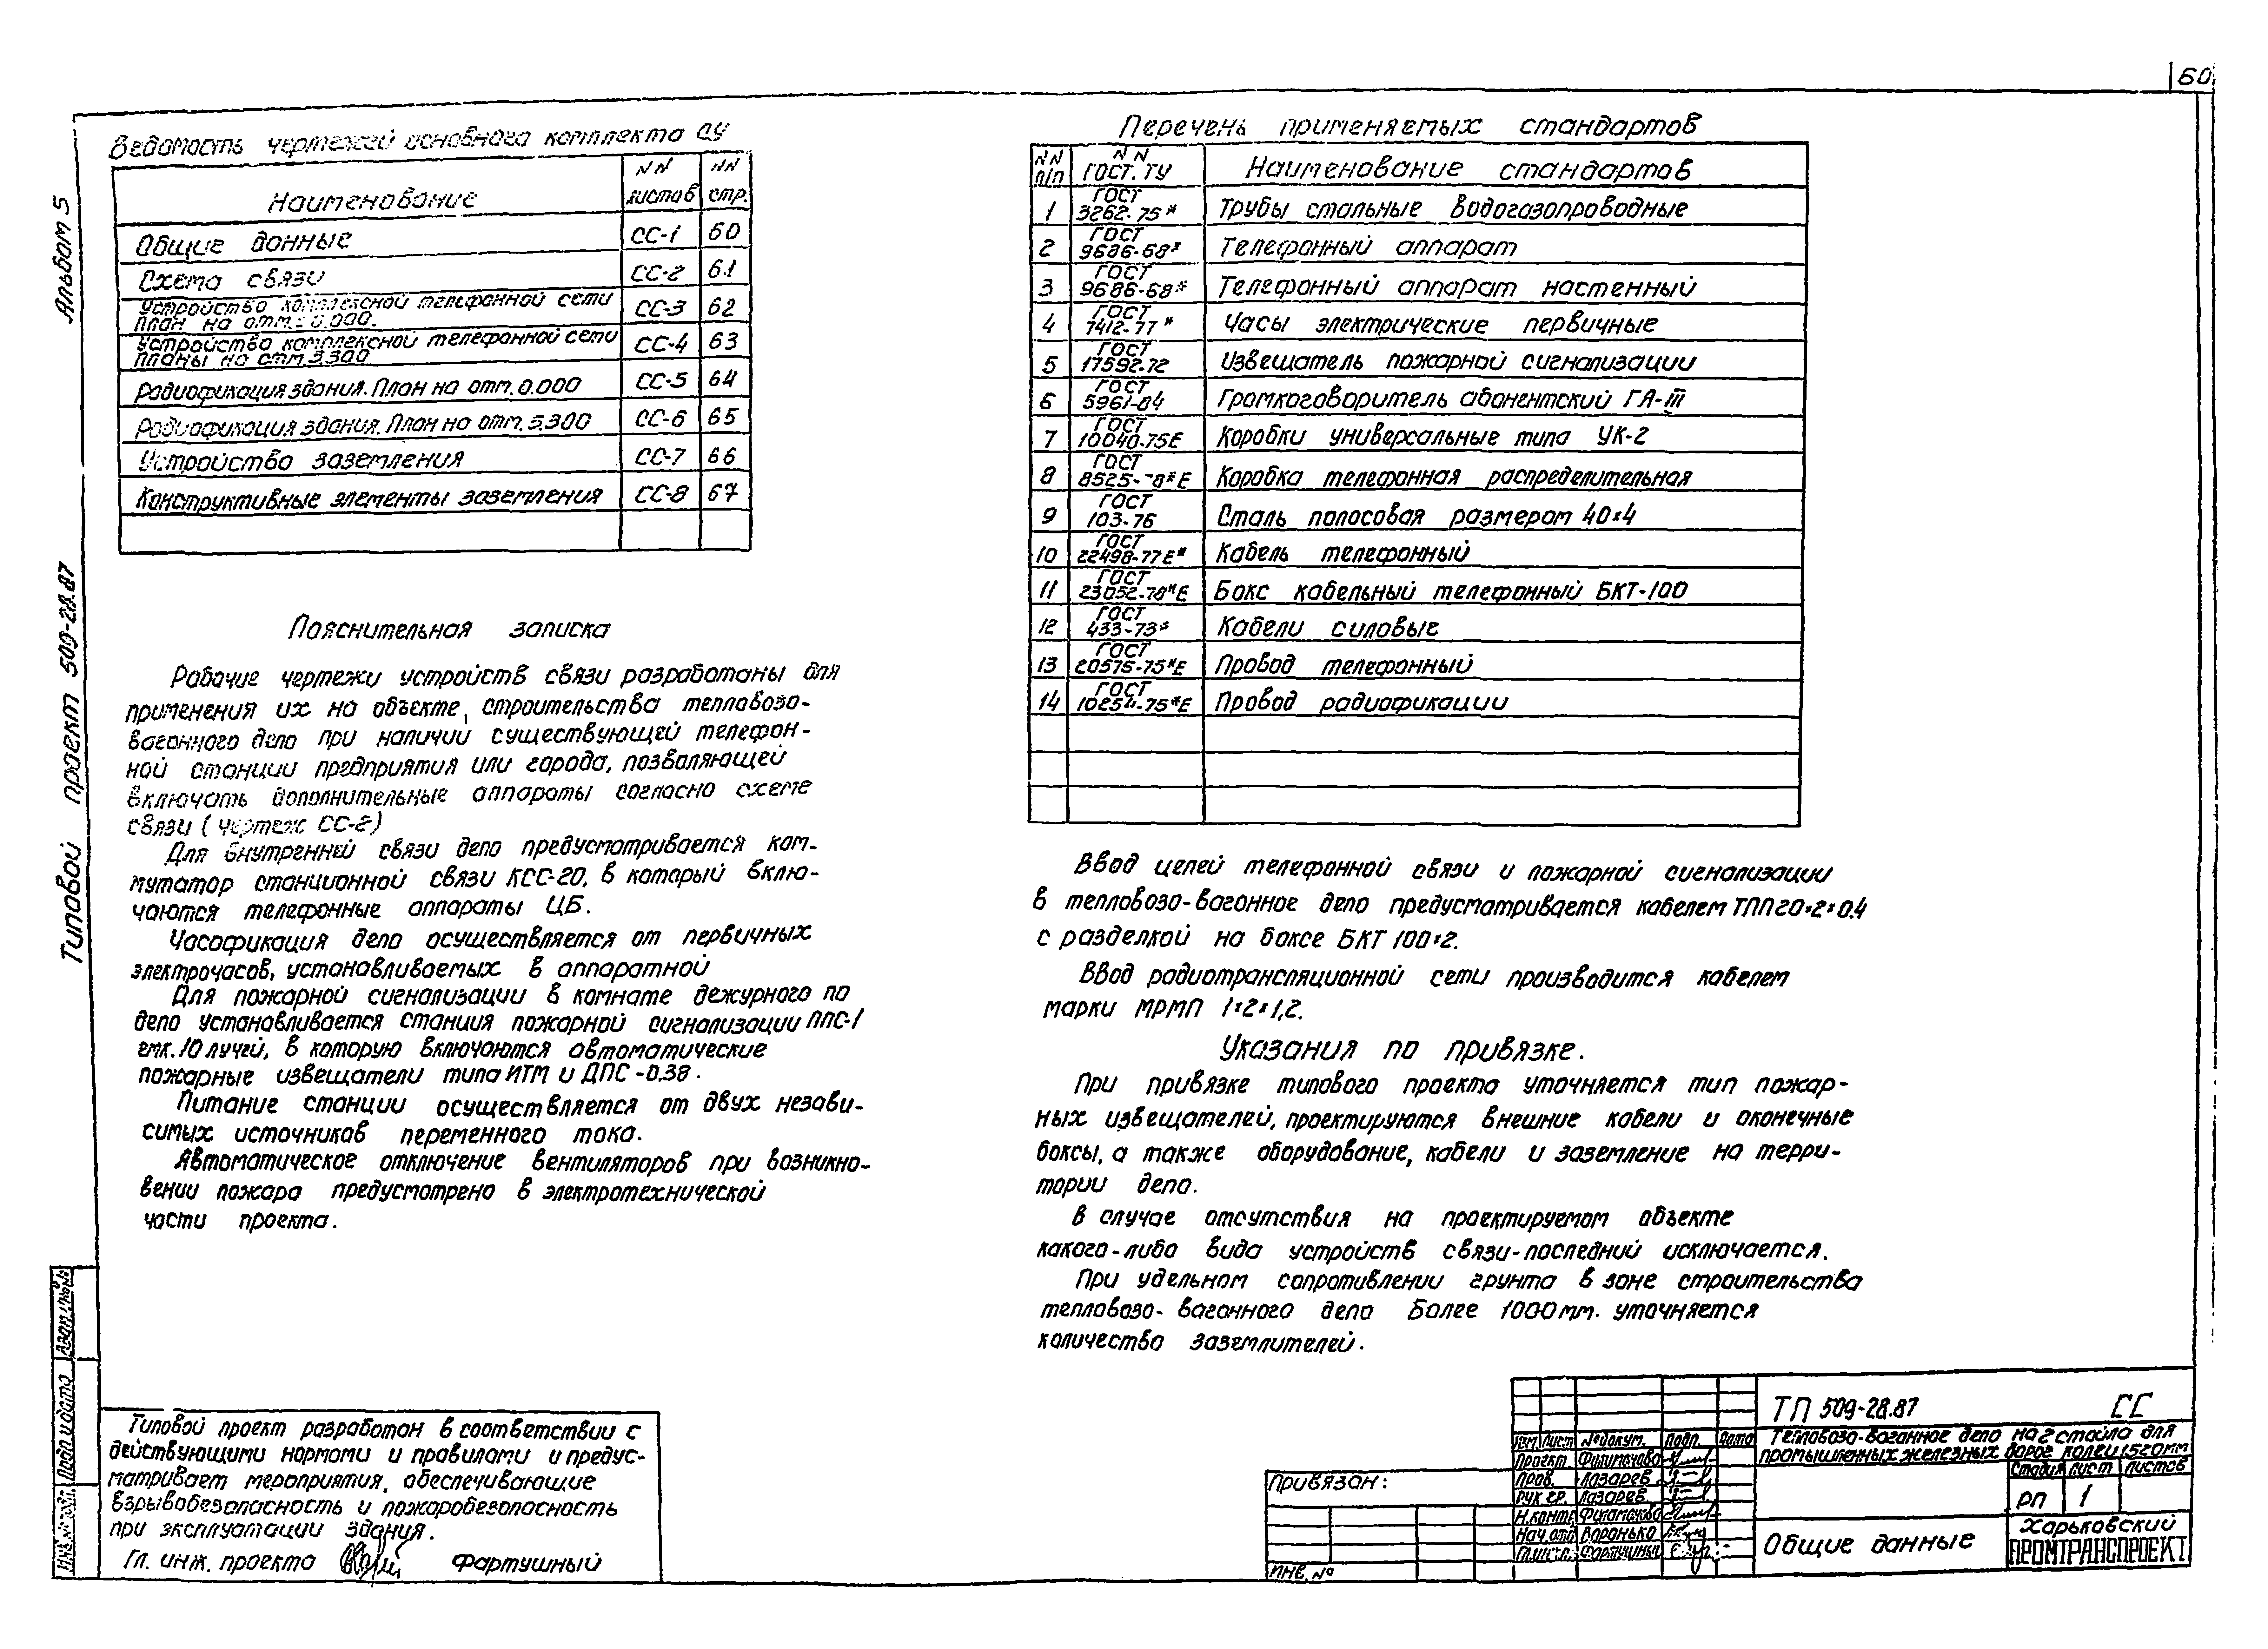 60
Альбом 5
Типовой проект 509-28.87
Ведомость чертежей основного комплекта
Наименование | NN листов | NN стр.
Общие данные | СС-1 | 60
Схема связи | СС-2 | 61
Устройство комплексной телефонной сети
План на отм. 0.000. | СС-3 | 62
Устройство комплексной телефонной сети
планы на отм. 3.300 | СС-4 | 63
Радиофикация здания. План на отм. 0.000 | СС-5 | 64
Радиофикация здания. План на отм. 3.300 | СС-6 | 65
Устройство заземления | СС-7 | 66
Конструктивные элементы заземления | СС-8 | 67
Пояснительная записка
Рабочие чертежи устройств связи разработаны для
применения их на объекте строительства тепловозо-
вагонного депо при наличии существующей телефон-
ной станции предприятия или города, позволяющей
включать дополнительные аппараты согласно схеме
связи (чертеж СС-2)
Для внутренней связи депо предусматривается ком-
мутатор станционной связи КСС-20, в который вклю-
чаются телефонные аппараты ЦБ.
Часофикация депо осуществляется от первичных
электрочасов, устанавливаемых в аппаратной
Для пожарной сигнализации в комнате дежурного по
депо устанавливается станция пожарной сигнализации ППС-1
емк. 10 лучей, в которую включаются автоматические
пожарные извещатели типа ИТМ и ДПС-0.38.
Питание станции осуществляется от двух незави-
симых источников переменного тока.
Автоматическое отключение вентиляторов при возникно-
вении пожара предусмотрено в электротехнической
части проекта.
Типовой проект разработан в соответствии с
действующими нормами и правилами и предус-
матривает мероприятия, обеспечивающие
взрывобезопасность и пожаробезопасность
при эксплуатации здания.
Гл. инж. проекта Фартушный
Перечень применяемых стандартов
NN п/п | NN ГОСТ. ТУ | Наименование стандартов
1 | ГОСТ 3262-75* | Трубы стальные водогазопроводные
2 | ГОСТ 9686-68* | Телефонный аппарат
3 | ГОСТ 9686-68* | Телефонный аппарат настенный
4 | ГОСТ 7412-77* | Часы электрические первичные
5 | ГОСТ 17592-72 | Извещатель пожарной сигнализации
6 | ГОСТ 5961-84 | Громкоговоритель абонентский ГА-III
7 | ГОСТ 10040-75Е | Коробки универсальные типа УК-2
8 | ГОСТ 8525-78*Е | Коробка телефонная распределительная
9 | ГОСТ 103-76 | Сталь полосовая размером 40×4
10 | ГОСТ 22498-77Е* | Кабель телефонный
11 | ГОСТ 23052-78*Е | Бокс кабельный телефонный БКТ-100
12 | ГОСТ 433-73* | Кабели силовые
13 | ГОСТ 20575-75*Е | Провод телефонный
14 | ГОСТ 10254-75*Е | Провод радиофикации
Ввод цепей телефонной связи и пожарной сигнализации
в тепловозо-вагонное депо предусматривается кабелем ТПП 20×2×0.4
с разделкой на боксе БКТ 100×2.
Ввод радиотрансляционной сети производится кабелем
марки МРМП 1×2×1,2.
Указания по привязке.
При привязке типового проекта уточняется тип пожар-
ных извещателей, проектируются внешние кабели и оконечные
боксы, а также оборудование, кабели и заземление на терри-
тории депо.
В случае отсутствия на проектируемом объекте
какого-либо вида устройств связи-последний исключается.
При удельном сопротивлении грунта в зоне строительства
тепловозо-вагонного депо более 1000мм. уточняется
количество заземлителей.
Привязан:
ИНВ. №
Изм. Лист № докум. Подп. Дата
Проект. Филимонова
Пров. Лазарев
Рук. гр. Лазарев.
Н.контр. Филимонова
Нач. отд. Воронько
Фартушный
ТП 509-28.87 СС
Тепловозо-вагонное депо на 2 стойла для
промышленных железных дорог колеи 1520мм
Стадия Лист Листов
РП 1
Общие данные
Харьковский
ПРОМТРАНСПРОЕКТ
Взам. инв. №
Подп. и дата
Инв. № подл.